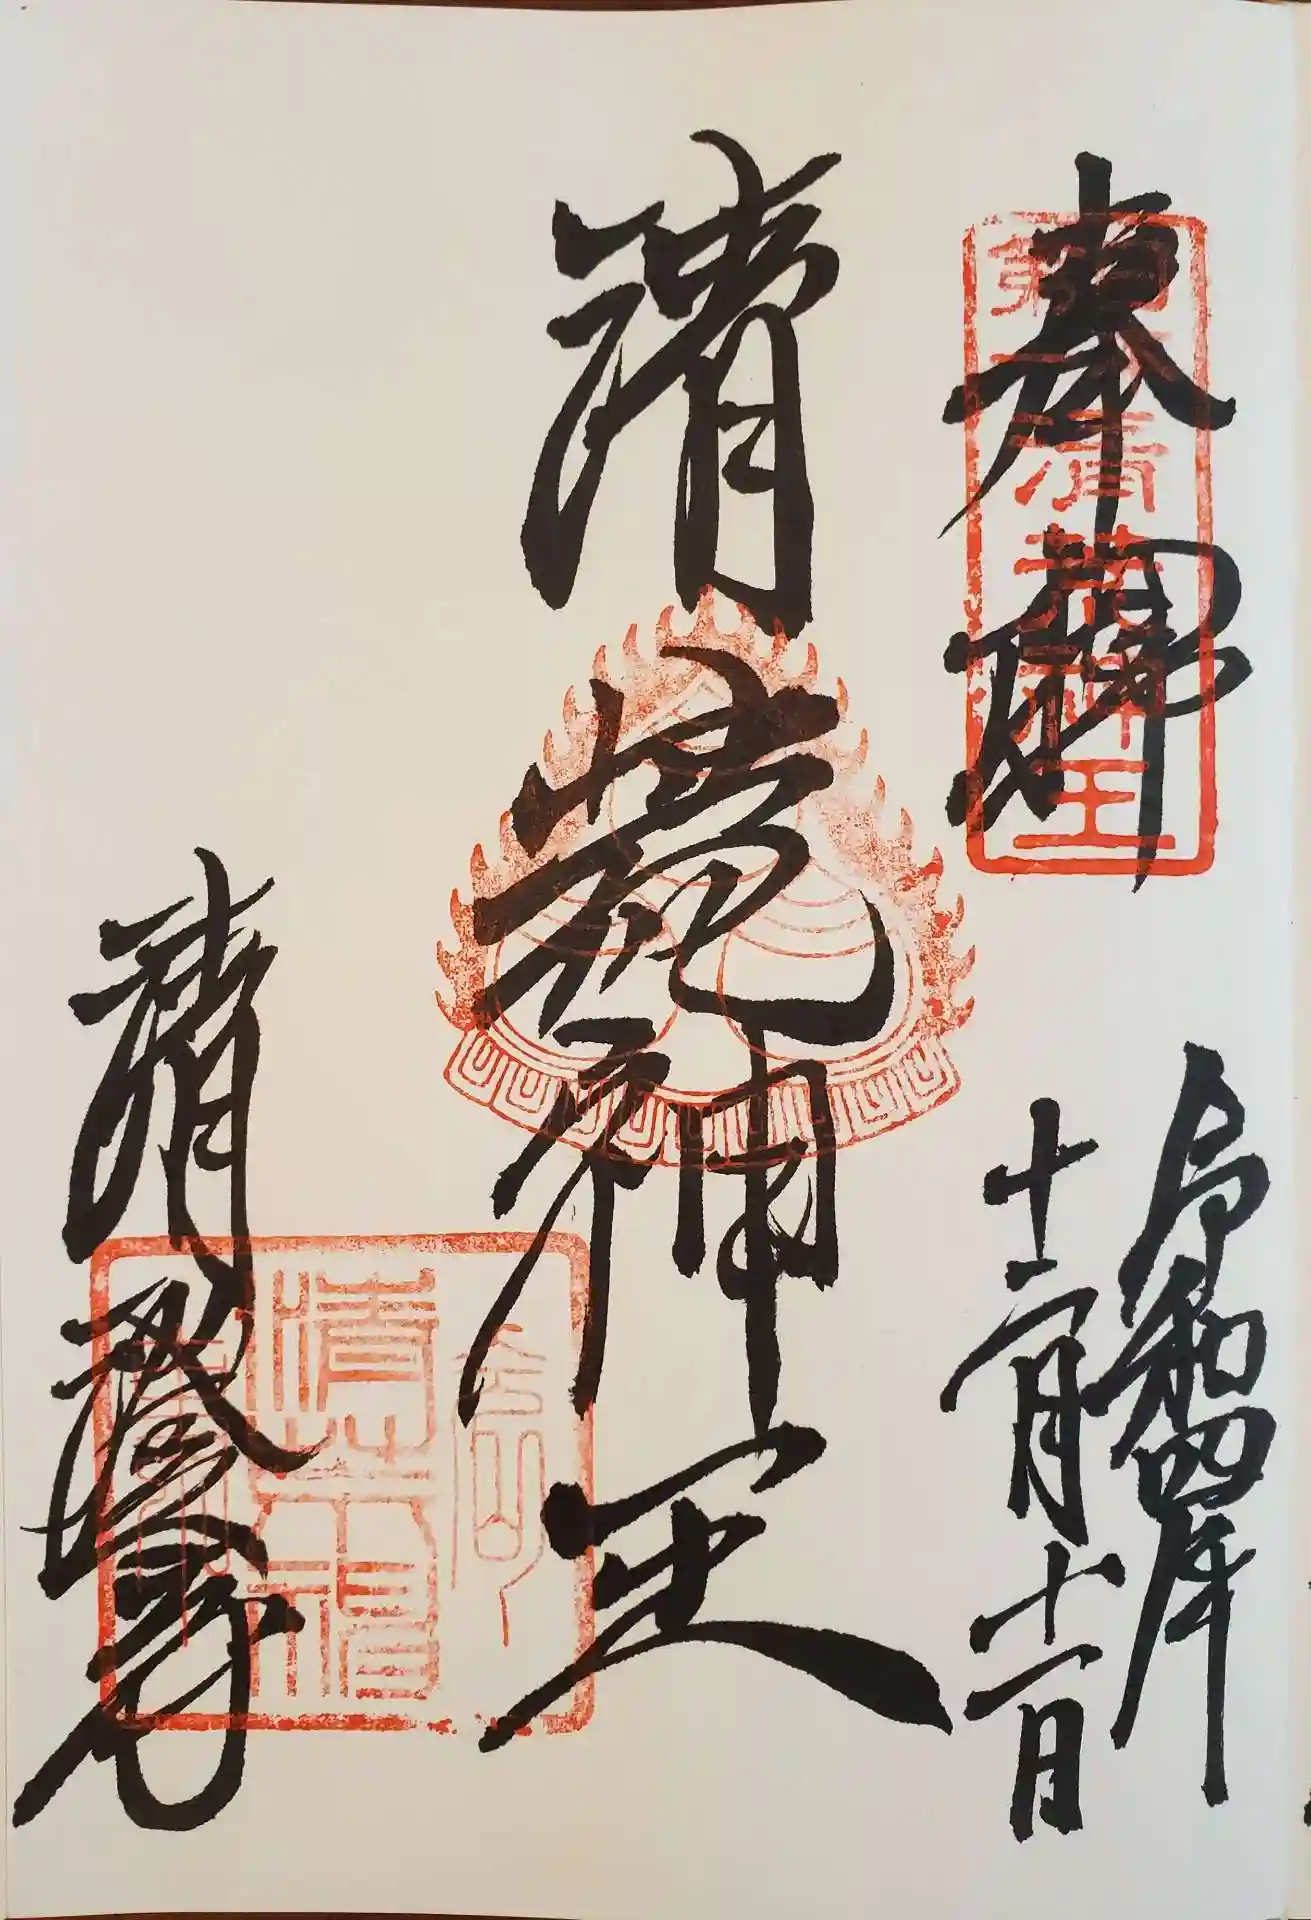 奉拝
令和四年
十二月十一日
清荒神王
清荒神王
清澄寺
清荒神